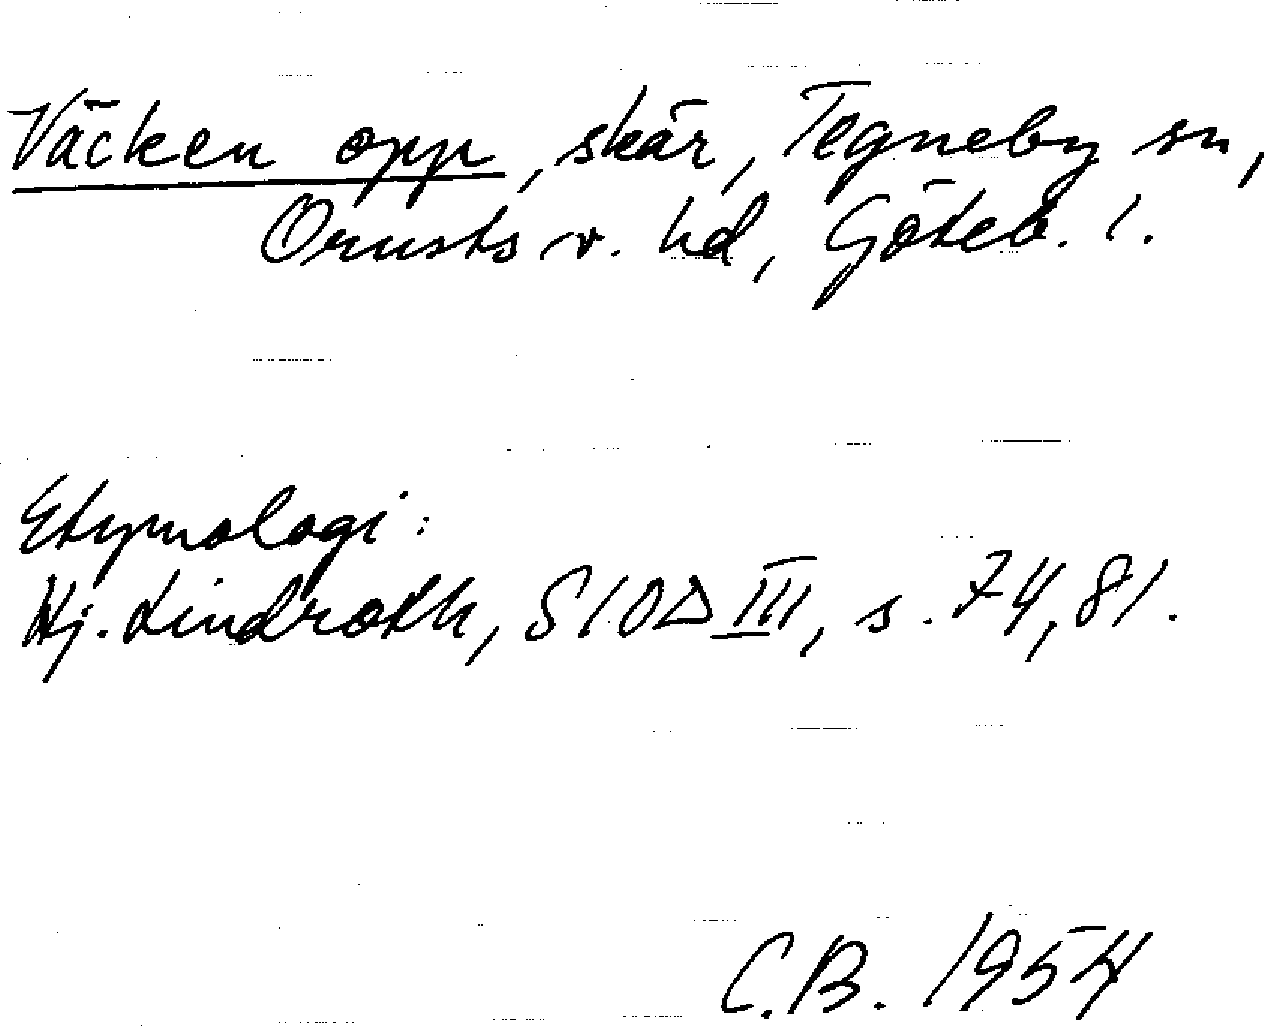 Väcken opp, skär, Tegneby sn,
Orusts v. hd, Göteb. l.
Etymologi:
Hj. Lindroth, SIOD III, s. 74, 81.
C.B. 1954